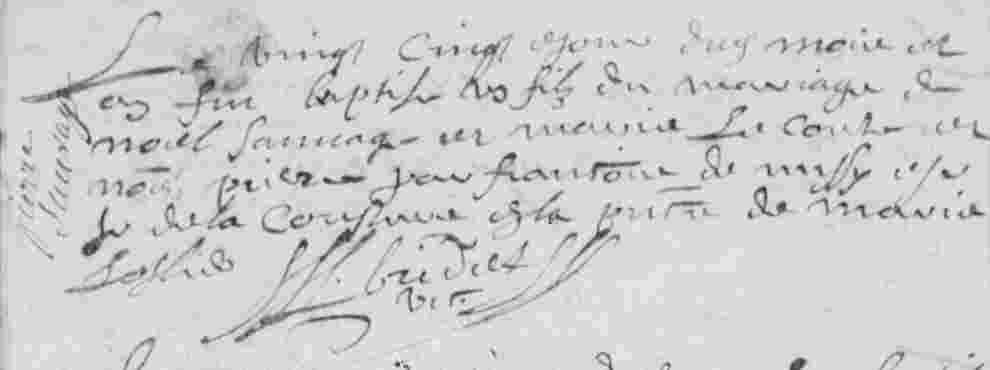 Pierre
Sauvage
Le vingt cinq jour dud mois et
an fut baptise un fils du mariage de
noel Sauvage et marie Le cont et
nōe pierre par frantois de missy esr
sr de la Cousture en la pntre de marie
bridet
vic